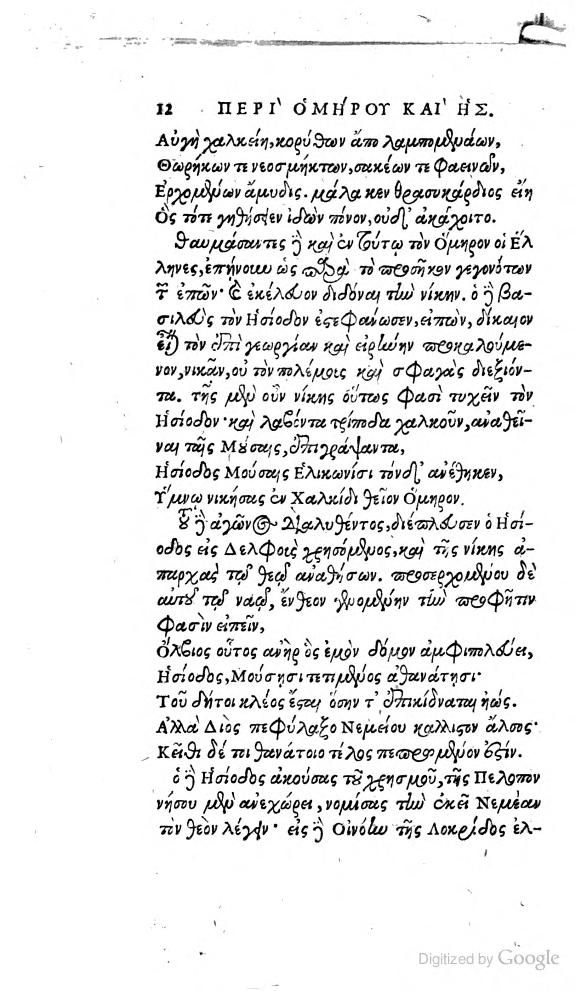 12 ΠΕΡΙ` ὉΜΉΡΟΥ ΚΑΙ` ἩΣ.
Αὐγὴ χαλκείη, κορύθων ἄπο λαμπομενάων,
Θωρήκων τε νεοσμήκτων, σακέων τε φαεινῶν,
Ερχομένων ἄμυδις. μάλα κεν θρασυκάρδιος εἴη
Ὃς τότε γηθήσειεν ἰδὼν πόνον, οὐδ' ἀκάχοιτο.
θαυμάσαντες δὲ καὶ ἐν τούτῳ τὸν Ὅμηρον οἱ Ἕλ
ληνες, ἐπῄνουν ὡς παρὰ τὸ προσῆκον γεγονότων
τῶν ἐπῶν· καὶ ἐκέλευον διδόναι τὴν νίκην. ὁ δὲ βα-
σιλεὺς τὸν Ἡσίοδον ἐστεφάνωσεν, εἰπὼν, δίκαιον
εἶναι τὸν ἐπὶ γεωργίαν καὶ εἰρήνην προκαλούμε-
νον, νικᾶν, οὐ τὸν πολέμοις καὶ σφαγὰς διεξιόν-
τα. τῆς μὲν οὖν νίκης οὕτως φασὶ τυχεῖν τὸν
Ἡσίοδον· καὶ λαβόντα τρίποδα χαλκοῦν, ἀναθεῖ-
ναι ταῖς Μούσαις, ἐπιγράψαντα,
Ἡσίοδος Μούσαις Ελικωνίσι τόνδ' ἀνέθηκεν,
Ὕμνῳ νικήσας ἐν Χαλκίδι θεῖον Ὅμηρον.
τοῦ δὲ ἀγῶνος διαλυθέντος, διέπλευσεν ὁ Ἡσί-
οδος εἰς Δελφοὺς χρησόμενος, καὶ τῆς νίκης ἀ-
παρχὰς τῷ θεῷ ἀναθήσων. προσερχομένου δὲ
αὐτοῦ τῷ ναῷ, ἔνθεον γενομένην τὴν προφῆτίν
φασὶν εἰπεῖν,
Ὄλβιος οὗτος ἀνὴρ ὃς ἐμὸν δόμον ἀμφιπολεύει,
Ἡσίοδος, Μούσῃσι τετιμένος ἀθανάτῃσι·
Τοῦ δήτοι κλέος ἔσται ὅσην τ' ἐπικίδναται ἠώς.
Αλλὰ Διὸς πεφύλαξο Νεμείου κάλλιστον ἄλσος·
Κεῖθι δέ τοι θανάτοιο τέλος πεπρωμένον ἐστίν.
ὁ δὲ Ἡσίοδος ἀκούσας τοῦ χρησμοῦ, τῆς Πελοπον
νήσου μὲν ἀνεχώρει, νομίσας τὴν ἐκεῖ Νεμέαν
τὸν θεὸν λέγειν· εἰς δὲ Οἰνόην τῆς Λοκρίδος ἐλ-
Digitized by Google